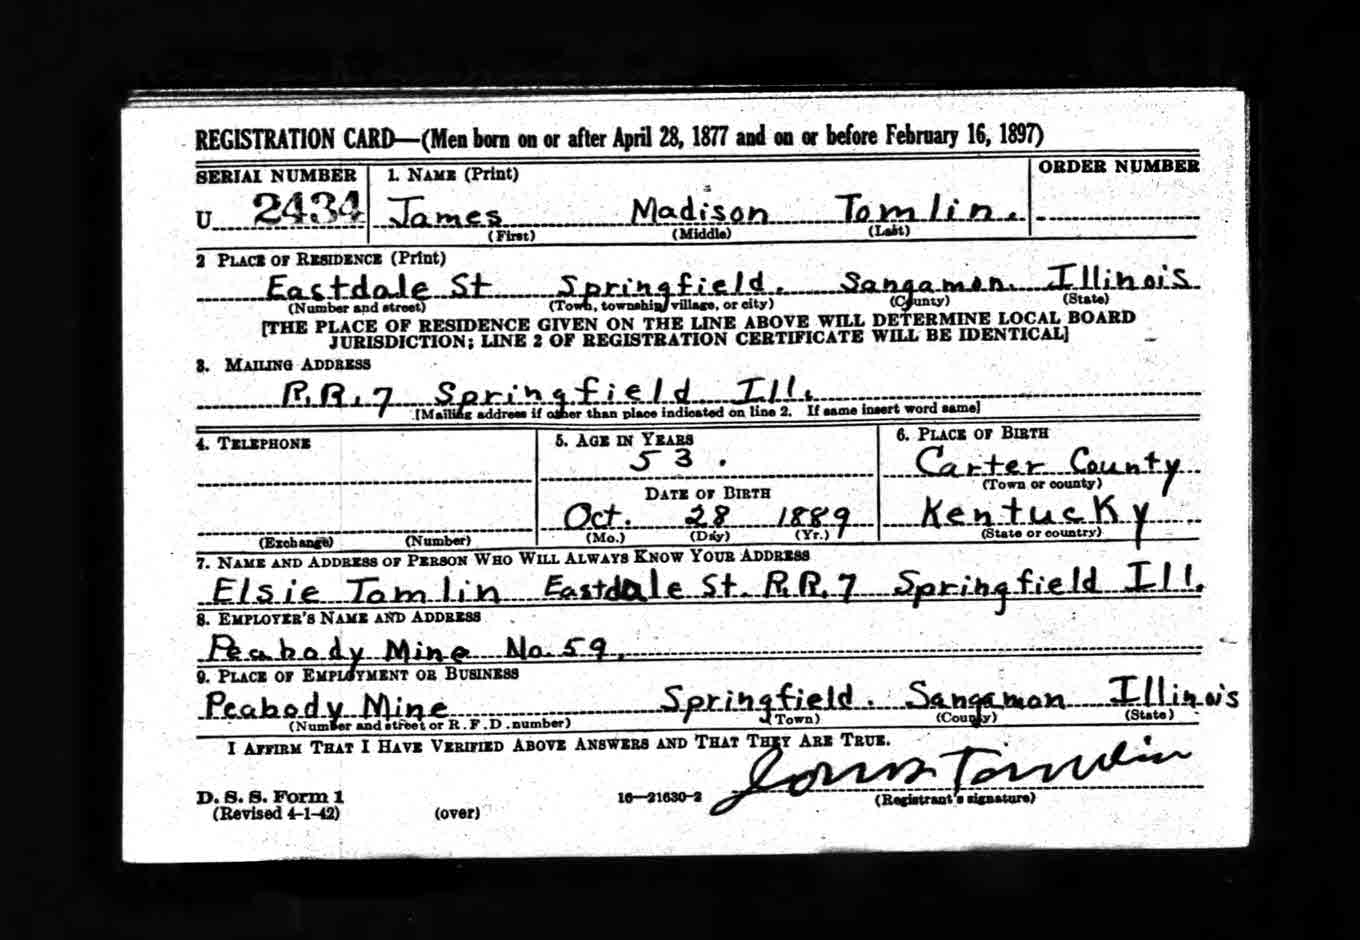 REGISTRATION CARD—(Men born on or after April 28, 1877 and on or before February 16, 1897)
SERIAL NUMBER 1. NAME (Print) ORDER NUMBER
U 2434 James Madison Tomlin.
(First) (Middle) (Last)
2 PLACE OF RESIDENCE (Print)
Eastdale St Springfield. Sangamon. Illinois
(Number and street) (Town, township, village, or city) (County) (State)
[THE PLACE OF RESIDENCE GIVEN ON THE LINE ABOVE WILL DETERMINE LOCAL BOARD
JURISDICTION; LINE 2 OF REGISTRATION CERTIFICATE WILL BE IDENTICAL]
3. MAILING ADDRESS
R.R.7 Springfield Ill.
[Mailing address if other than place indicated on line 2. If same insert word same]
4. TELEPHONE 5. AGE IN YEARS 6. PLACE OF BIRTH
53. Carter County
(Town or county)
DATE OF BIRTH
Oct. 28 1889 Kentucky
(Exchange) (Number) (Mo.) (Day) (Yr.) (State or country)
7. NAME AND ADDRESS OF PERSON WHO WILL ALWAYS KNOW YOUR ADDRESS
Elsie Tomlin Eastdale St. R.R.7 Springfield Ill.
8. EMPLOYER'S NAME AND ADDRESS
Peabody Mine No. 59.
9. PLACE OF EMPLOYMENT OR BUSINESS
Peabody Mine Springfield. Sangamon Illinois
(Number and street or R. F. D. number) (Town) (County) (State)
I AFFIRM THAT I HAVE VERIFIED ABOVE ANSWERS AND THAT THEY ARE TRUE.
James Tomlin
D. S. S. Form 1 16—21630-2 (Registrant's signature)
(Revised 4-1-42) (over)